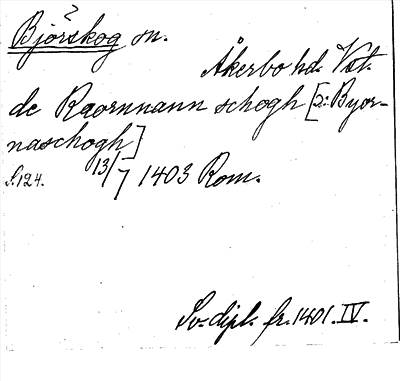 ?
Björskog sn.
Åkerbo hd. Vst.
de Raornnann schogh [ɔ: Byor-
naschogh]
S. 124. 13/7 1403 Rom.
Sv. dipl. fr. 1401. IV.